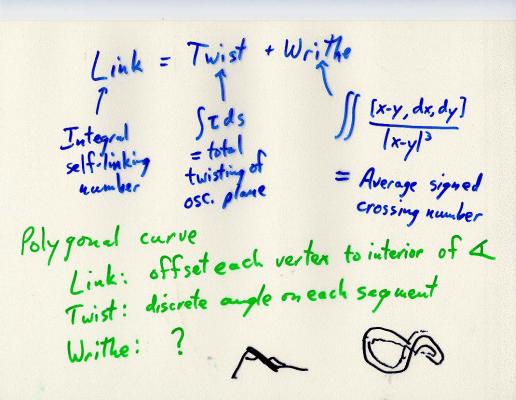 Link = Twist + Writhe
Integral
self-linking
number
∫τ ds
= total
twisting of
osc. plane
∬ [x-y, dx, dy] / |x-y|³
= Average signed
crossing number
Polygonal curve
Link: offset each vertex to interior of ∡
Twist: discrete angle on each segment
Writhe: ?